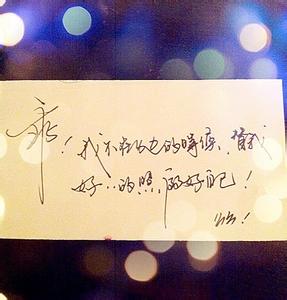 乖！我不在身边的時候，替我
好..的照顧好自己！